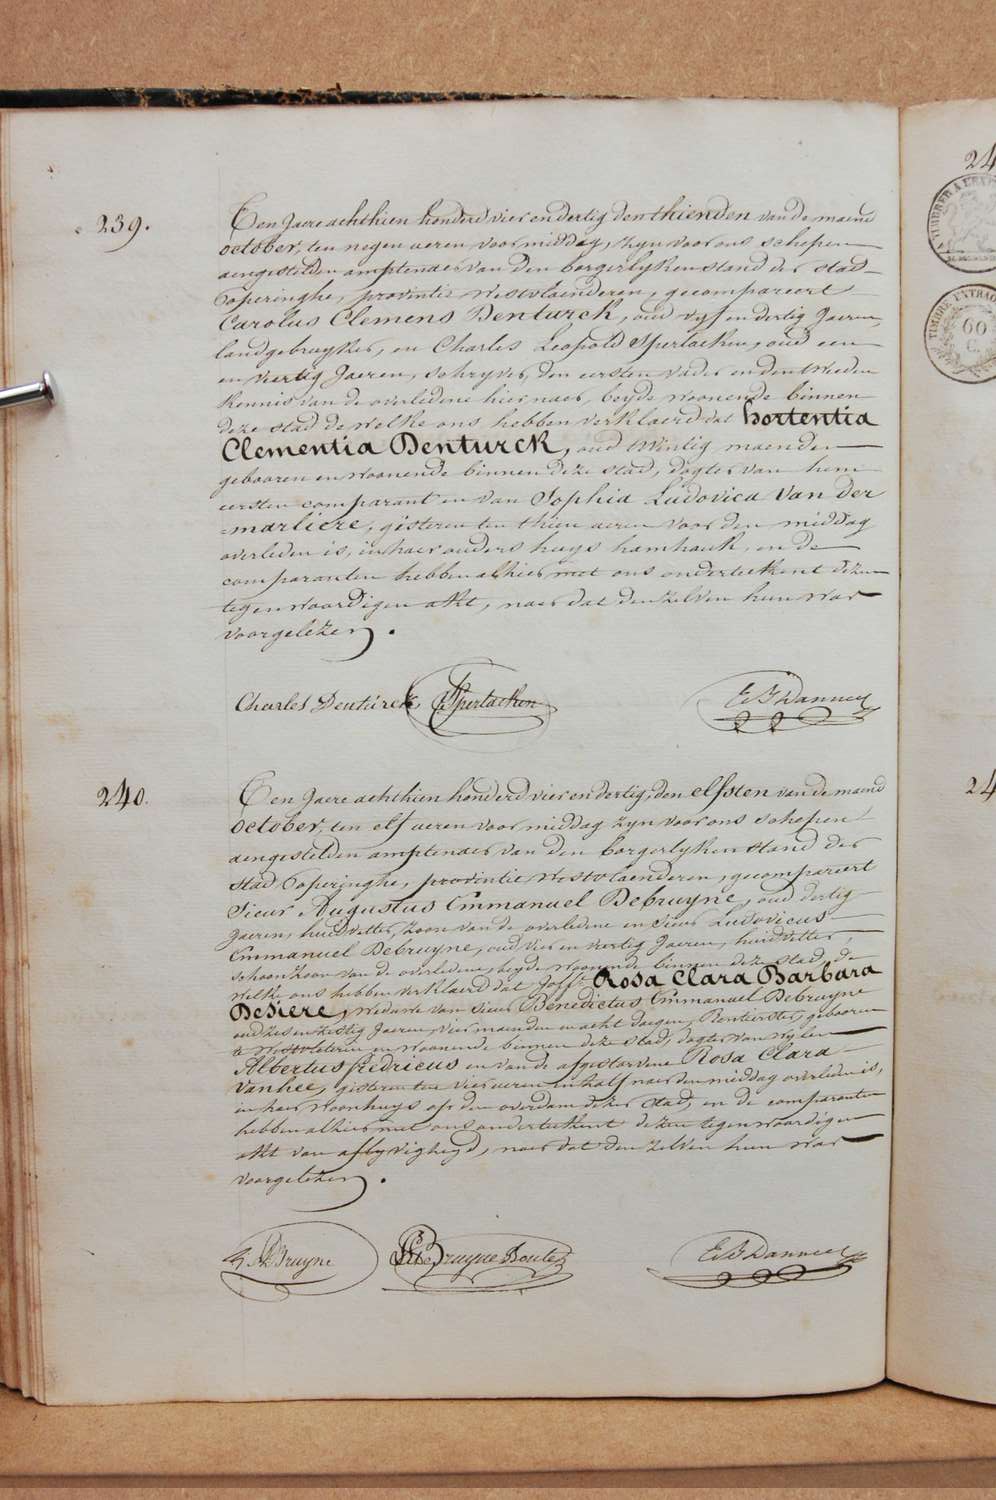 239.
Ten Jaere achthien honderd vier en dertig den thienden van de maend
october, ten negen ueren voor middag, zyn voor ons schepen
aengestelden amptenaer van den borgerlyken stand der stad
Poperinghe, provintie Westvlaenderen, gecompareert
Carolus Clemens Denturck, oud vyf en dertig Jaeren,
landgebruyker, en Charles Leopold Sperlaeken, oud een
en viertig Jaeren, schryver, den eersten vader en den tweeden
kennis van de overledene hier naer, beyde woonende binnen
deze stad de welke ons hebben verklaerd dat Hortentia
Clementia Denturck, oud twintig maenden
gebooren en woonende binnen deze stad, dogter van hem
eersten comparant en van Sophia Ludovica Van der
=marliere, gisteren ten thien ueren voor den middag
overleden is, in haer ouders huys hamhauk, en de
comparanten hebben alhier met ons onderteekent dezen
tegenwoordigen akt, naer dat den zelven hun war
voorgelezen.
Charles Denturck Sperlaeken
240.
Ten Jaere achthien honderd vier en dertig, den elfsten van de maend
october, ten elf ueren voor middag zyn voor ons schepen
aengestelden amptenaer van den borgerlyken stand der
stad Poperinghe, provintie Westvlaenderen, gecompareert
Sieur Augustus Emmanuel Debruyne, oud dertig
Jaeren, huidvetter, zoon van de overledene en Sieur Ludovicus
Emmanuel Debruyne, oud vier en viertig Jaeren, huidvetter,
schoonzoon van de overledene, beyde woonende binnen deze stad, de
welke ons hebben verklaerd dat Joffe Rosa Clara Barbara
Desiere, weduwe van Sieur Benedictus Emmanuel Debruyne
oud zes en zestig Jaeren, vier maenden en acht daegen, Rentierster, gebooren
te Westvleteren en woonende binnen deze stad, dogter van wylen
Albertus fredricus en van de afgestorvene Rosa Clara
Vanhee, gisteren ten vier ueren en half naer den middag overleden is,
in haer woonhuys op den overdam dezer stad, en de comparanten
hebben alhier met ons onderteekent dezen tegenwoordigen
akt van aflyvigheyd, naer dat den zelven hun war
voorgelezen.
24
24
60
C.